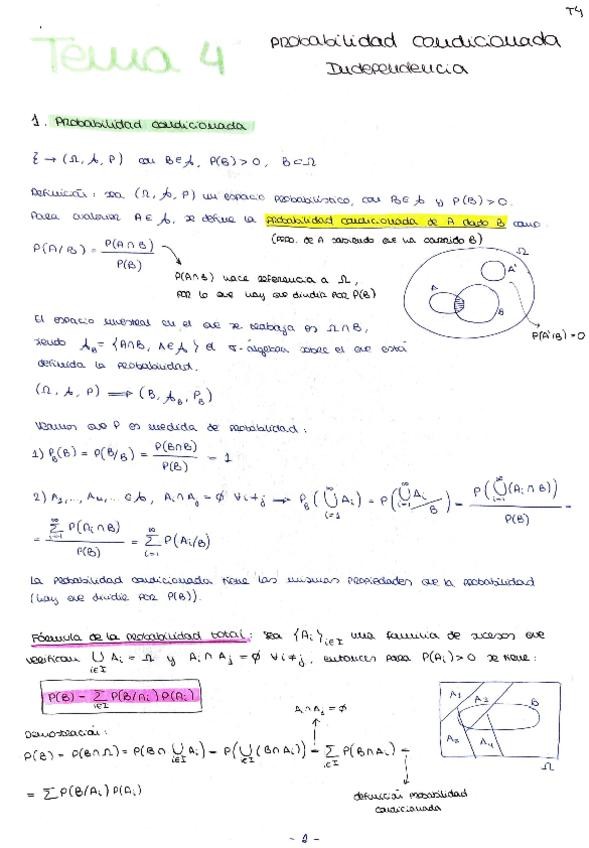 T4
Tema 4
Probabilidad condicionada
Independencia
1. Probabilidad condicionada
ξ → (Ω, A, P) con B∈A, P(B)>0, B⊂Ω
Definición: sea (Ω, A, P) un espacio probabilístico, con B∈A y P(B)>0.
Para cualquier A∈A, se define la probabilidad condicionada de A dado B como:
(prob. de A sabiendo que ha ocurrido B)
P(A/B) = P(A∩B) / P(B)
P(A∩B) hace referencia a Ω,
por lo que hay que dividir por P(B)
Ω
A'
A
B
P(A'/B)=0
El espacio muestral en el que se trabaja es Ω∩B,
siendo A_B = {A∩B, A∈A} el σ-álgebra sobre el que está
definida la probabilidad.
(Ω, A, P) ⟹ (B, A_B, P_B)
Veamos que P es medida de probabilidad:
1) P_B(B) = P(B/B) = P(B∩B) / P(B) = 1
2) A₁,..., Aₙ,... ∈A, Aᵢ∩Aⱼ = ∅ ∀i≠j → P_B(⋃_{i=1}^∞ Aᵢ) = P(⋃_{i=1}^∞ Aᵢ/B) = P(⋃_{i=1}^∞ (Aᵢ∩B)) / P(B) =
= Σ_{i=1}^∞ P(Aᵢ∩B) / P(B) = Σ_{i=1}^∞ P(Aᵢ/B)
La probabilidad condicionada tiene las mismas propiedades que la probabilidad
(hay que dividir por P(B)).
Fórmula de la probabilidad total: sea {Aᵢ}_{i∈I} una familia de sucesos que
verifican ⋃_{i∈I} Aᵢ = Ω y Aᵢ∩Aⱼ = ∅ ∀i≠j, entonces para P(Aᵢ)>0 se tiene:
P(B) = Σ_{i∈I} P(B/Aᵢ) P(Aᵢ)
A₁ A₂ B
A₃ A₄
Ω
Demostración:
Aᵢ∩Aⱼ = ∅
P(B) = P(B∩Ω) = P(B∩ ⋃_{i∈I} Aᵢ) = P(⋃_{i∈I} (B∩Aᵢ)) = Σ_{i∈I} P(B∩Aᵢ) =
definición probabilidad
condicionada
= Σ P(B/Aᵢ) P(Aᵢ)